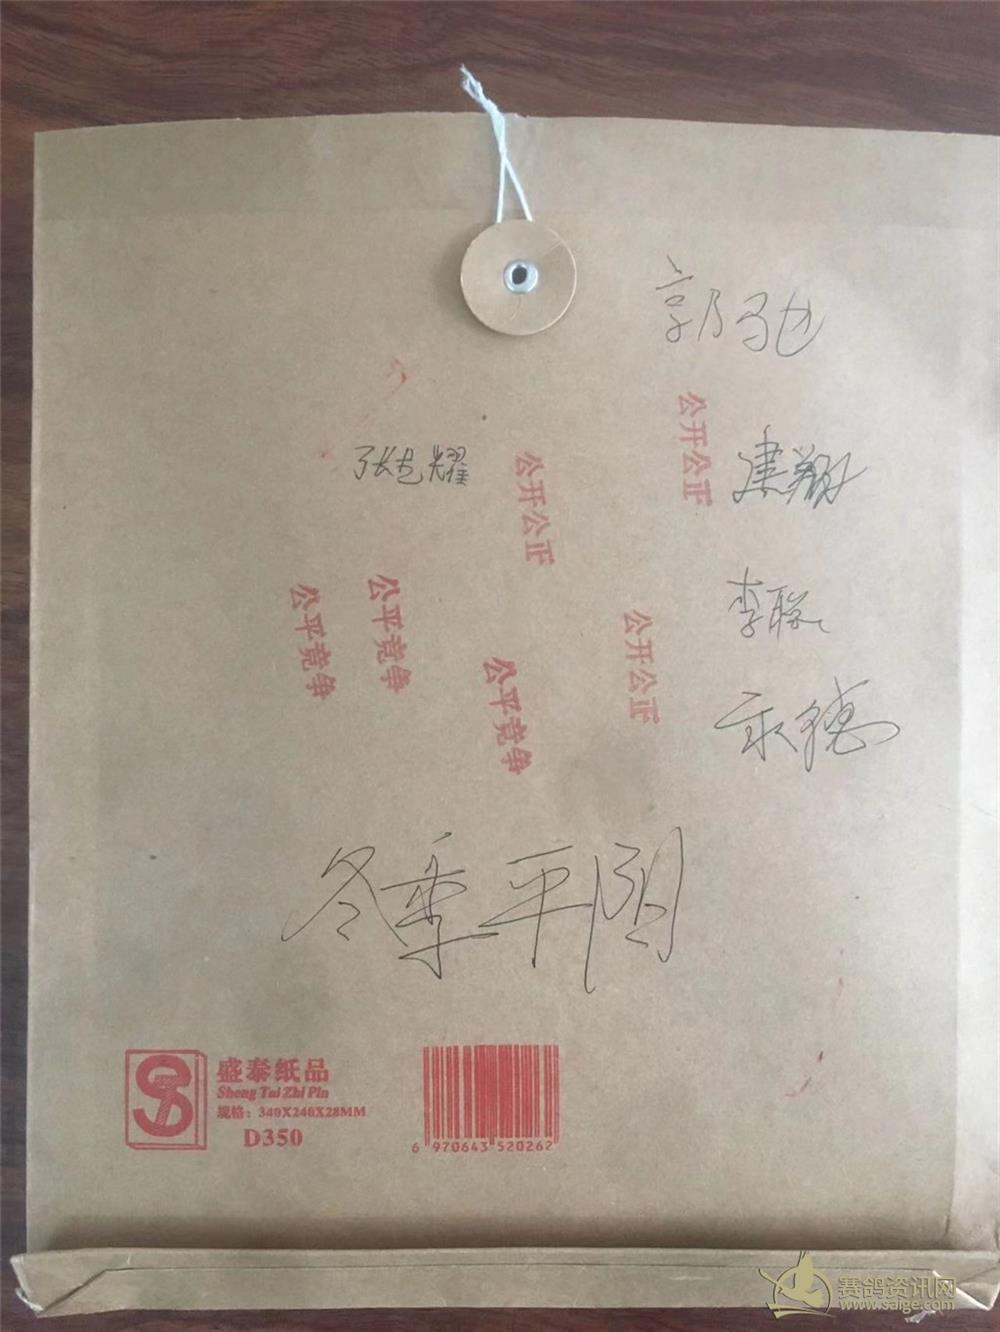 公开公正
李聪
公开公正
公平竞争
公平竞争
公开公正
公平竞争
冬季平阴
盛泰纸品
Sheng Tai Zhi Pin
规格：340X240X28MM
D350
6 970643 520262
赛鸽资讯网
www.saige.com